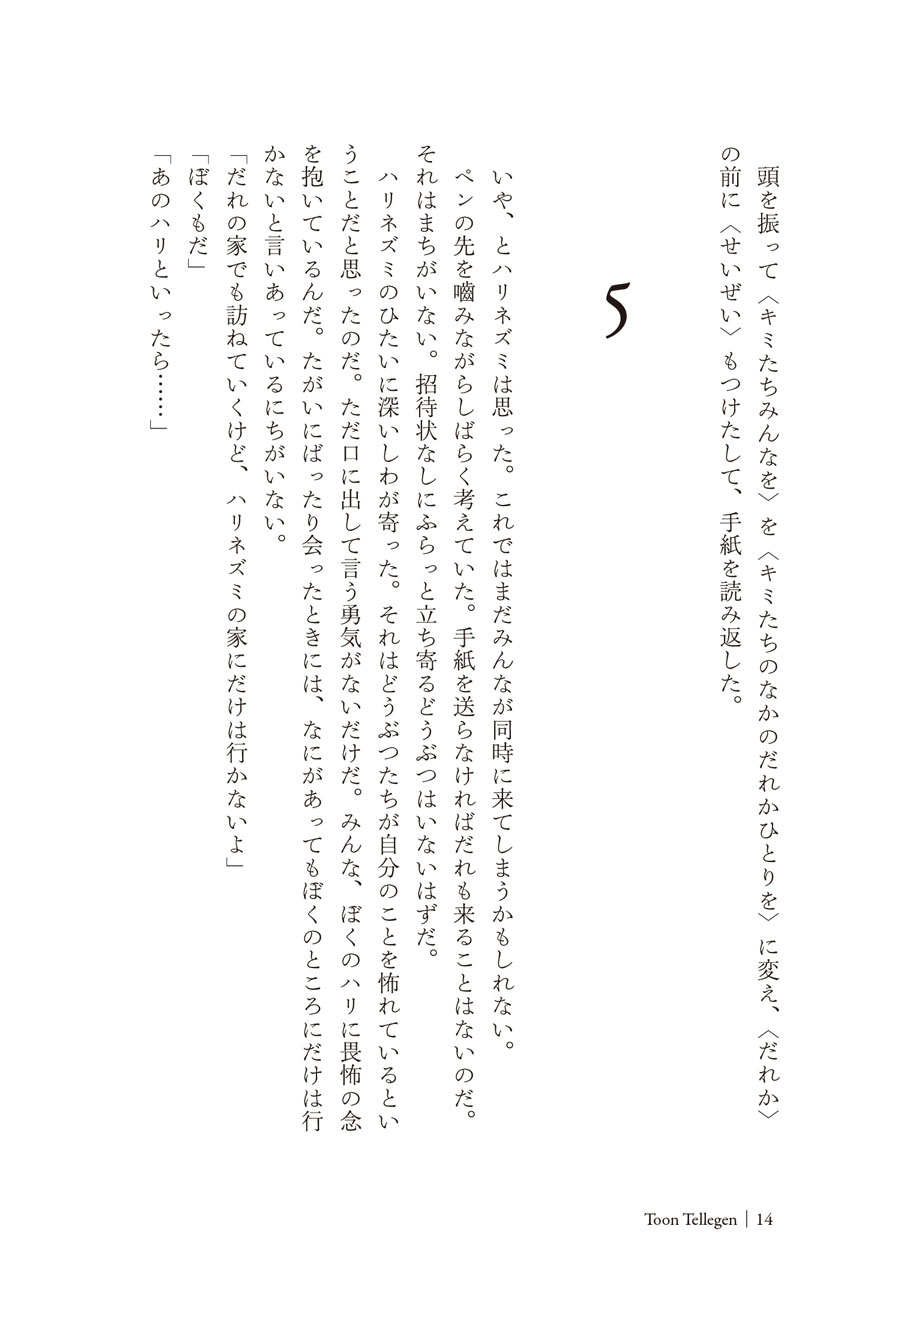 頭を振って〈キミたちみんなを〉を〈キミたちのなかのだれかひとりを〉に変え、〈だれか〉
の前に〈せいぜい〉もつけたして、手紙を読み返した。
5
いや、とハリネズミは思った。これではまだみんなが同時に来てしまうかもしれない。
ペンの先を嚙みながらしばらく考えていた。手紙を送らなければだれも来ることはないのだ。
それはまちがいない。招待状なしにふらっと立ち寄るどうぶつはいないはずだ。
ハリネズミのひたいに深いしわが寄った。それはどうぶつたちが自分のことを怖れているとい
うことだと思ったのだ。ただ口に出して言う勇気がないだけだ。みんな、ぼくのハリに畏怖の念
を抱いているんだ。たがいにばったり会ったときには、なにがあってもぼくのところにだけは行
かないと言いあっているにちがいない。
「だれの家でも訪ねていくけど、ハリネズミの家にだけは行かないよ」
「ぼくもだ」
「あのハリといったら……」
Toon Tellegen｜14